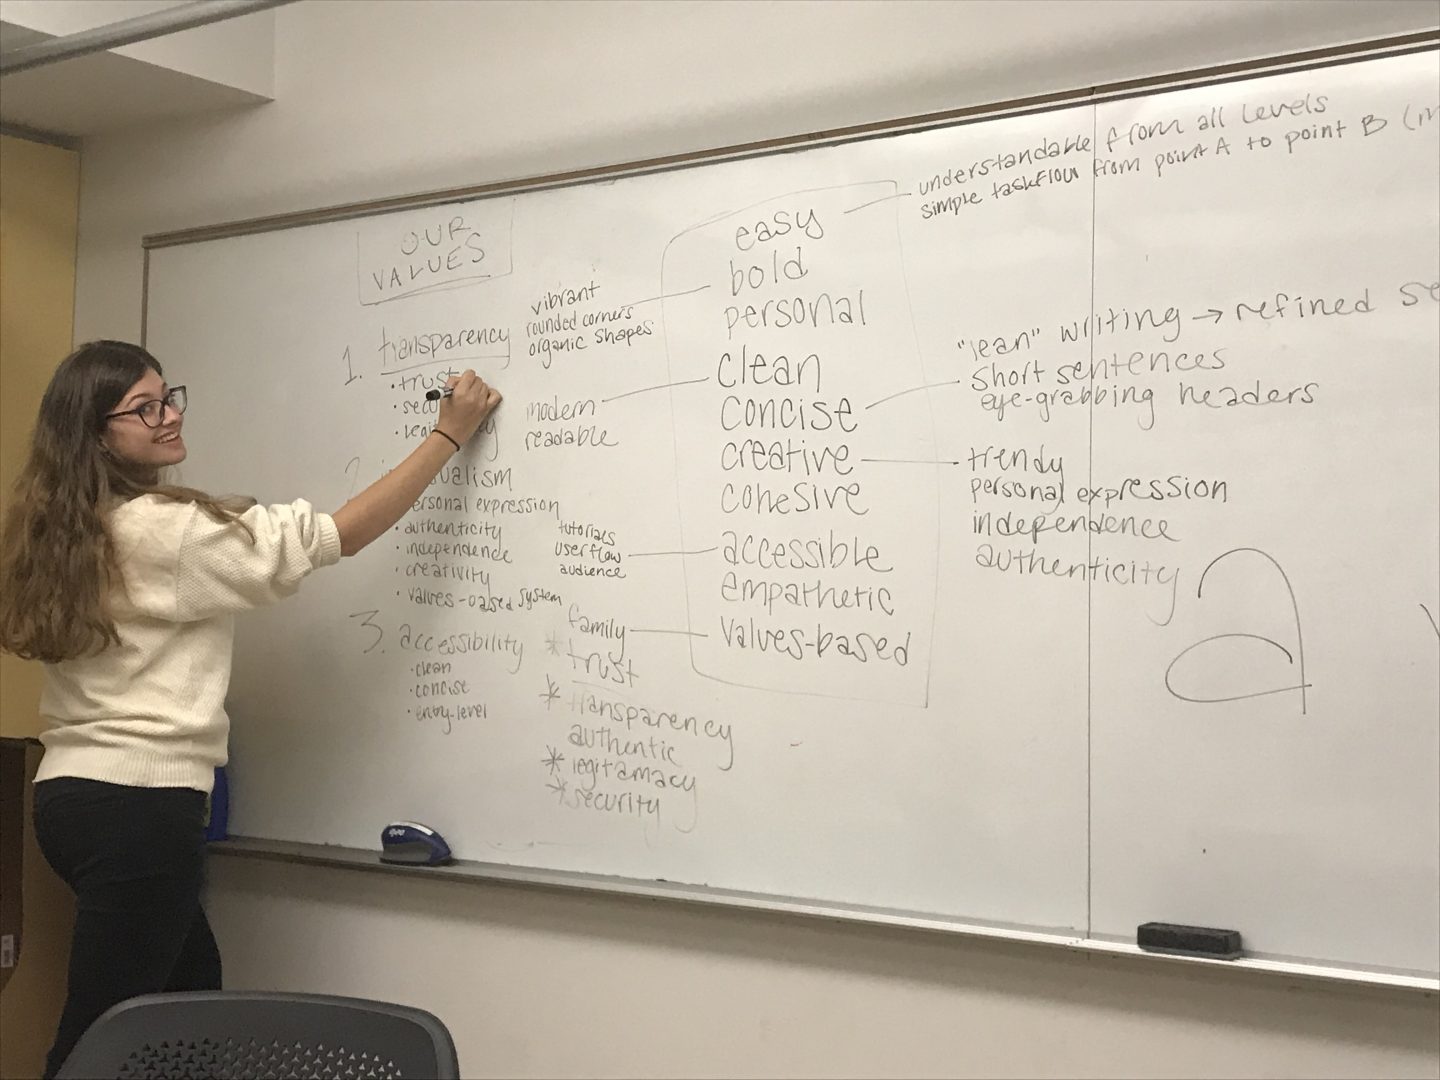 OUR
VALUES
1. transparency
• trust
• legi
personal expression
• authenticity
• independence
• creativity
• values-based system
3. accessibility
• clean
• concise
• entry-level
vibrant
rounded corners
organic shapes
modern
readable
tutorials
user flow
audience
family
* trust
* transparency
authentic
* legitamacy
* security
easy
bold
personal
clean
concise
creative
cohesive
accessible
empathetic
values-based
understandable from all levels
simple taskflow from point A to point B
"lean" writing → refined
short sentences
eye-grabbing headers
trendy
personal expression
independence
authenticity
a
expo